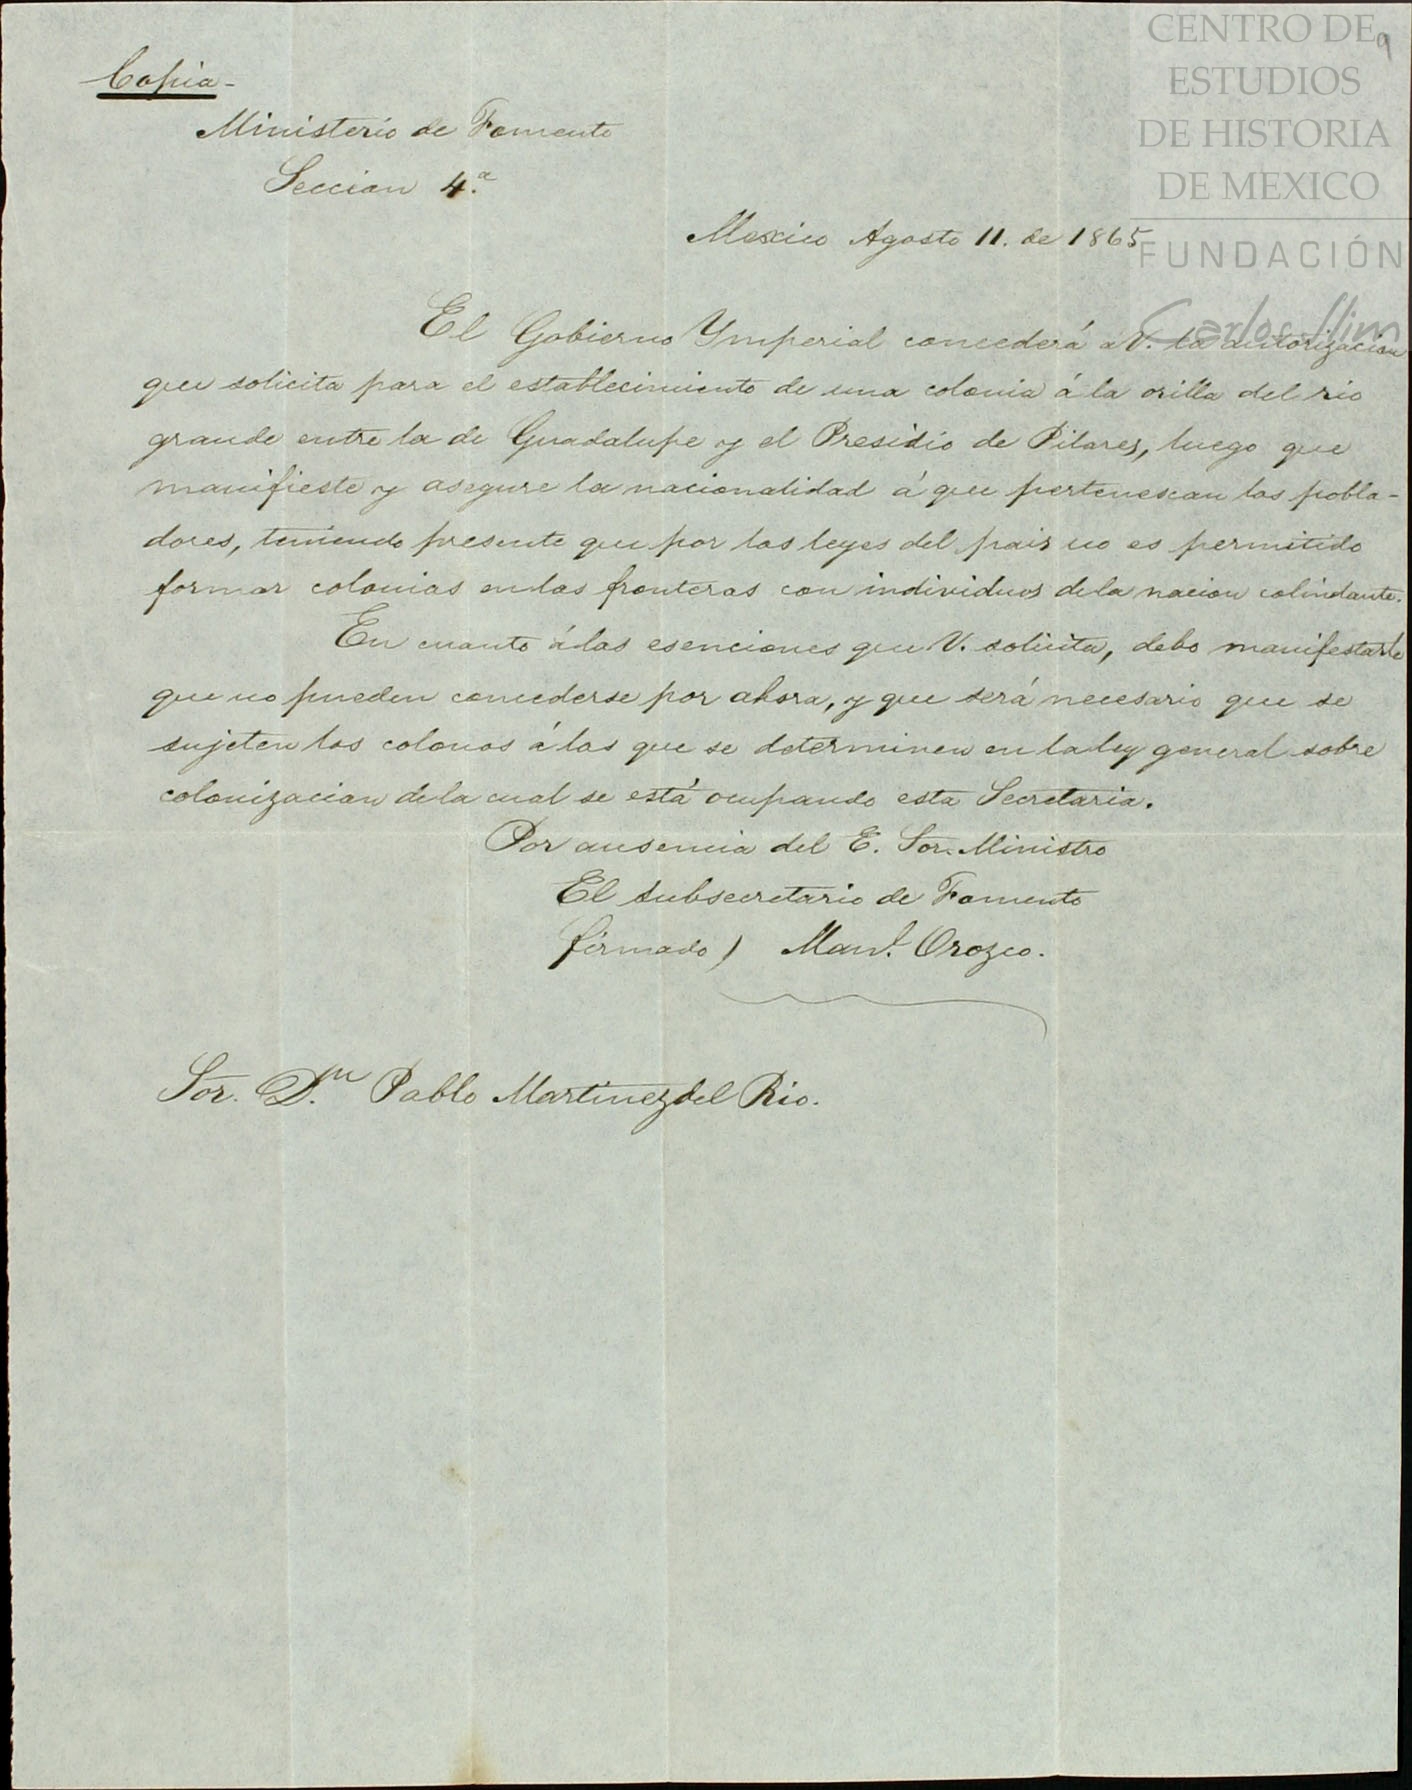 CENTRO DE
ESTUDIOS
DE HISTORIA
DE MEXICO
FUNDACIÓN
Carlos Slim
9
Copia-
Ministerio de Fomento
Seccion 4.ª
Mexico Agosto 11. de 1865
El Gobierno Ymperial concederá á V. la autorizacion
que solicita para el establecimiento de una colonia á la orilla del rio
grande entre la de Guadalupe y el Presidio de Pilares, luego que
manifieste y asegure la nacionalidad á que pertenescan los pobla-
dores, teniendo presente que por las leyes del pais no es permitido
formar colonias en las fronteras con individuos de la nacion colindante.
En cuanto á las esenciones que V. solicita, debo manifestarle
que no pueden concederse por ahora, y que será necesario que se
sujeten los colonos á las que se determinen en la ley general sobre
colonizacion de la cual se está ocupando esta Secretaria.
Por ausencia del E. Sor. Ministro
El Subsecretario de Fomento
firmado) Man.l Orozco.
Sor. D.n Pablo Martinez del Rio.